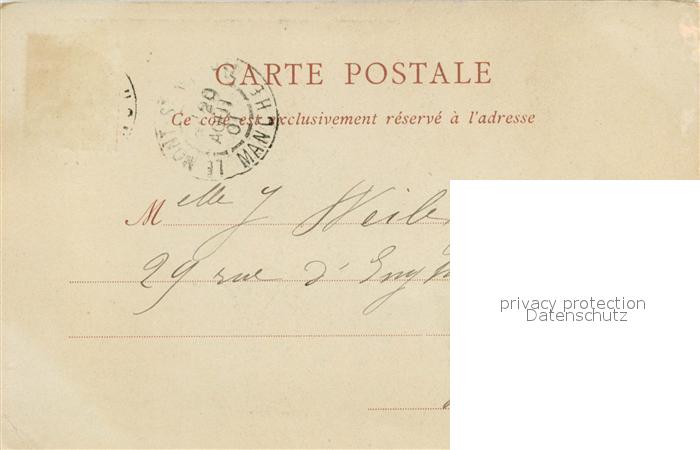 CARTE POSTALE
Ce côté est exclusivement réservé à l'adresse
LE MONT ST MANCHE
20 AOUT 01
Melle J
29 rue d'
privacy protection
Datenschutz